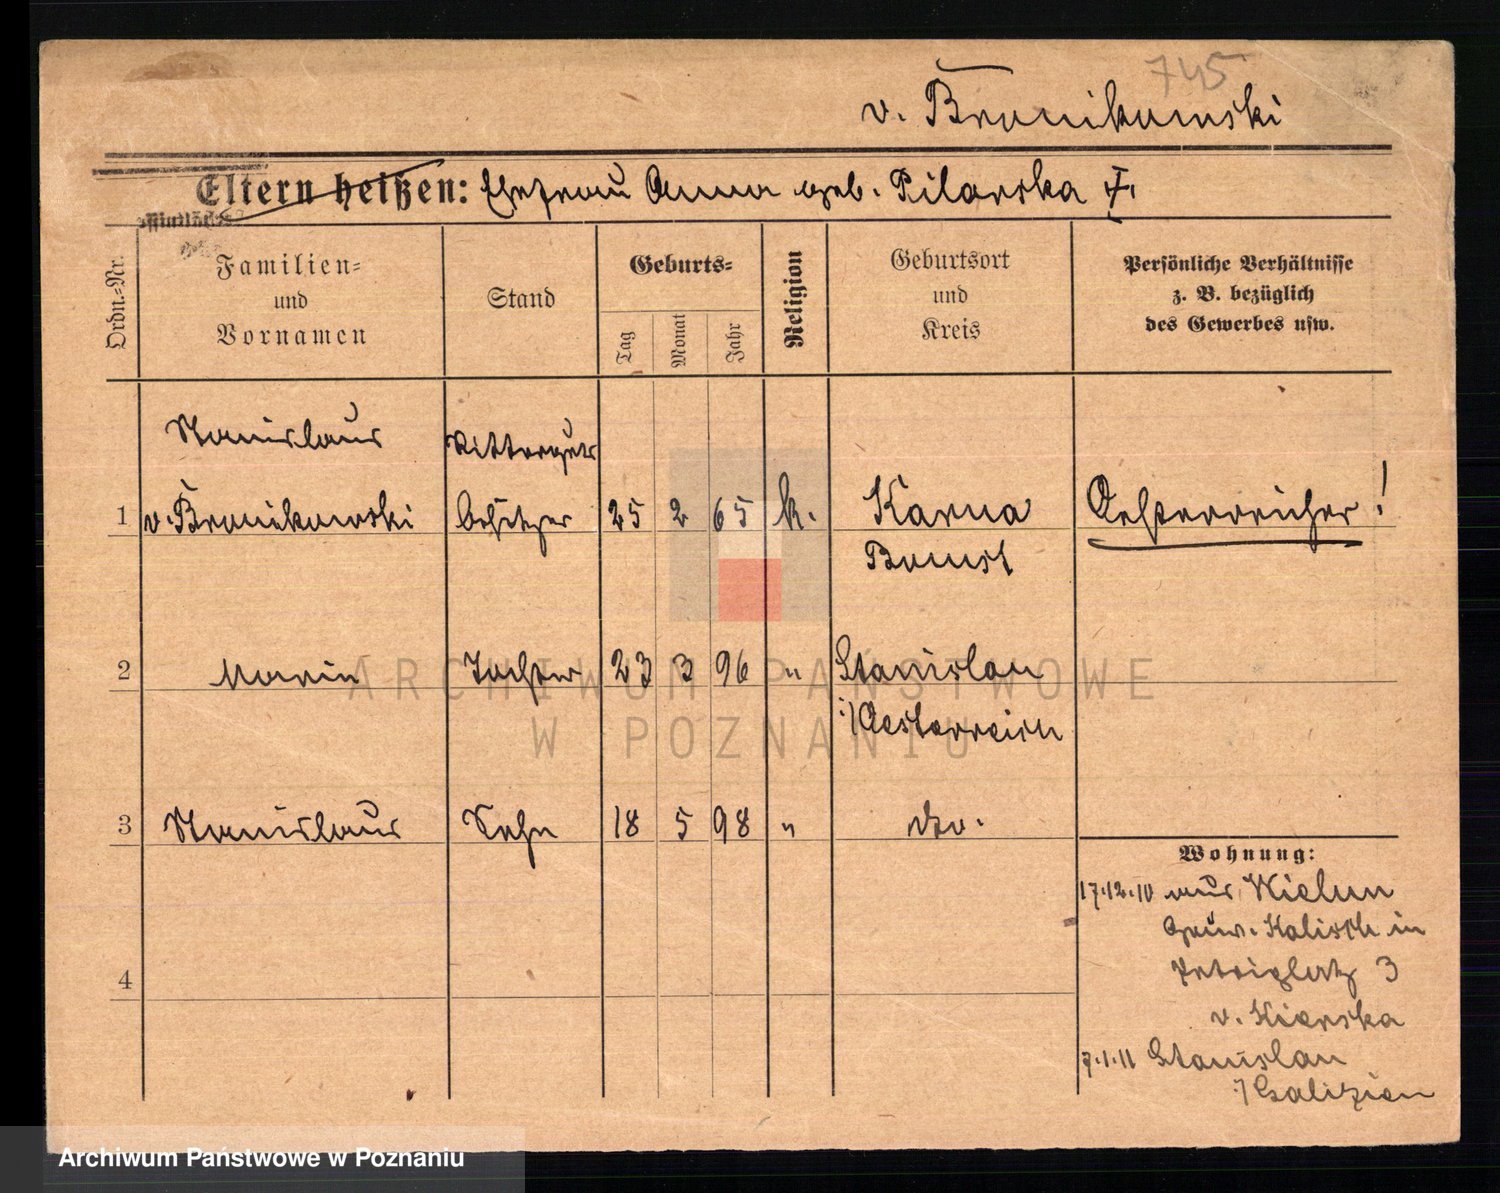 745
v. Bronikowski
Eltern heißen: Ehefrau Anna geb. Pilarska †.
Ordn.-Nr.
Familien-
und
Vornamen
Stand
Geburts-
Tag
Monat
Jahr
Religion
Geburtsort
und
Kreis
Persönliche Verhältnisse
z. B. bezüglich
des Gewerbes usw.
Stanislaus Ritterguts
1 v. Bronikowski besitzer 25 2 65 k. Karna Oesterreicher!
Bomst
2 Marie Tochter 23 3 96 " Stanislau
i/Oesterreich
3 Stanislaus Sohn 18 5 98 " do.
4
Wohnung:
17.12.10 aus Wielun
Gouv. Kalisch in
Petriplatz 3
v. Kierska
7.1.11 Stanislau
i/Galizien
ARCHIWUM PAŃSTWOWE
W POZNANIU
Archiwum Państwowe w Poznaniu